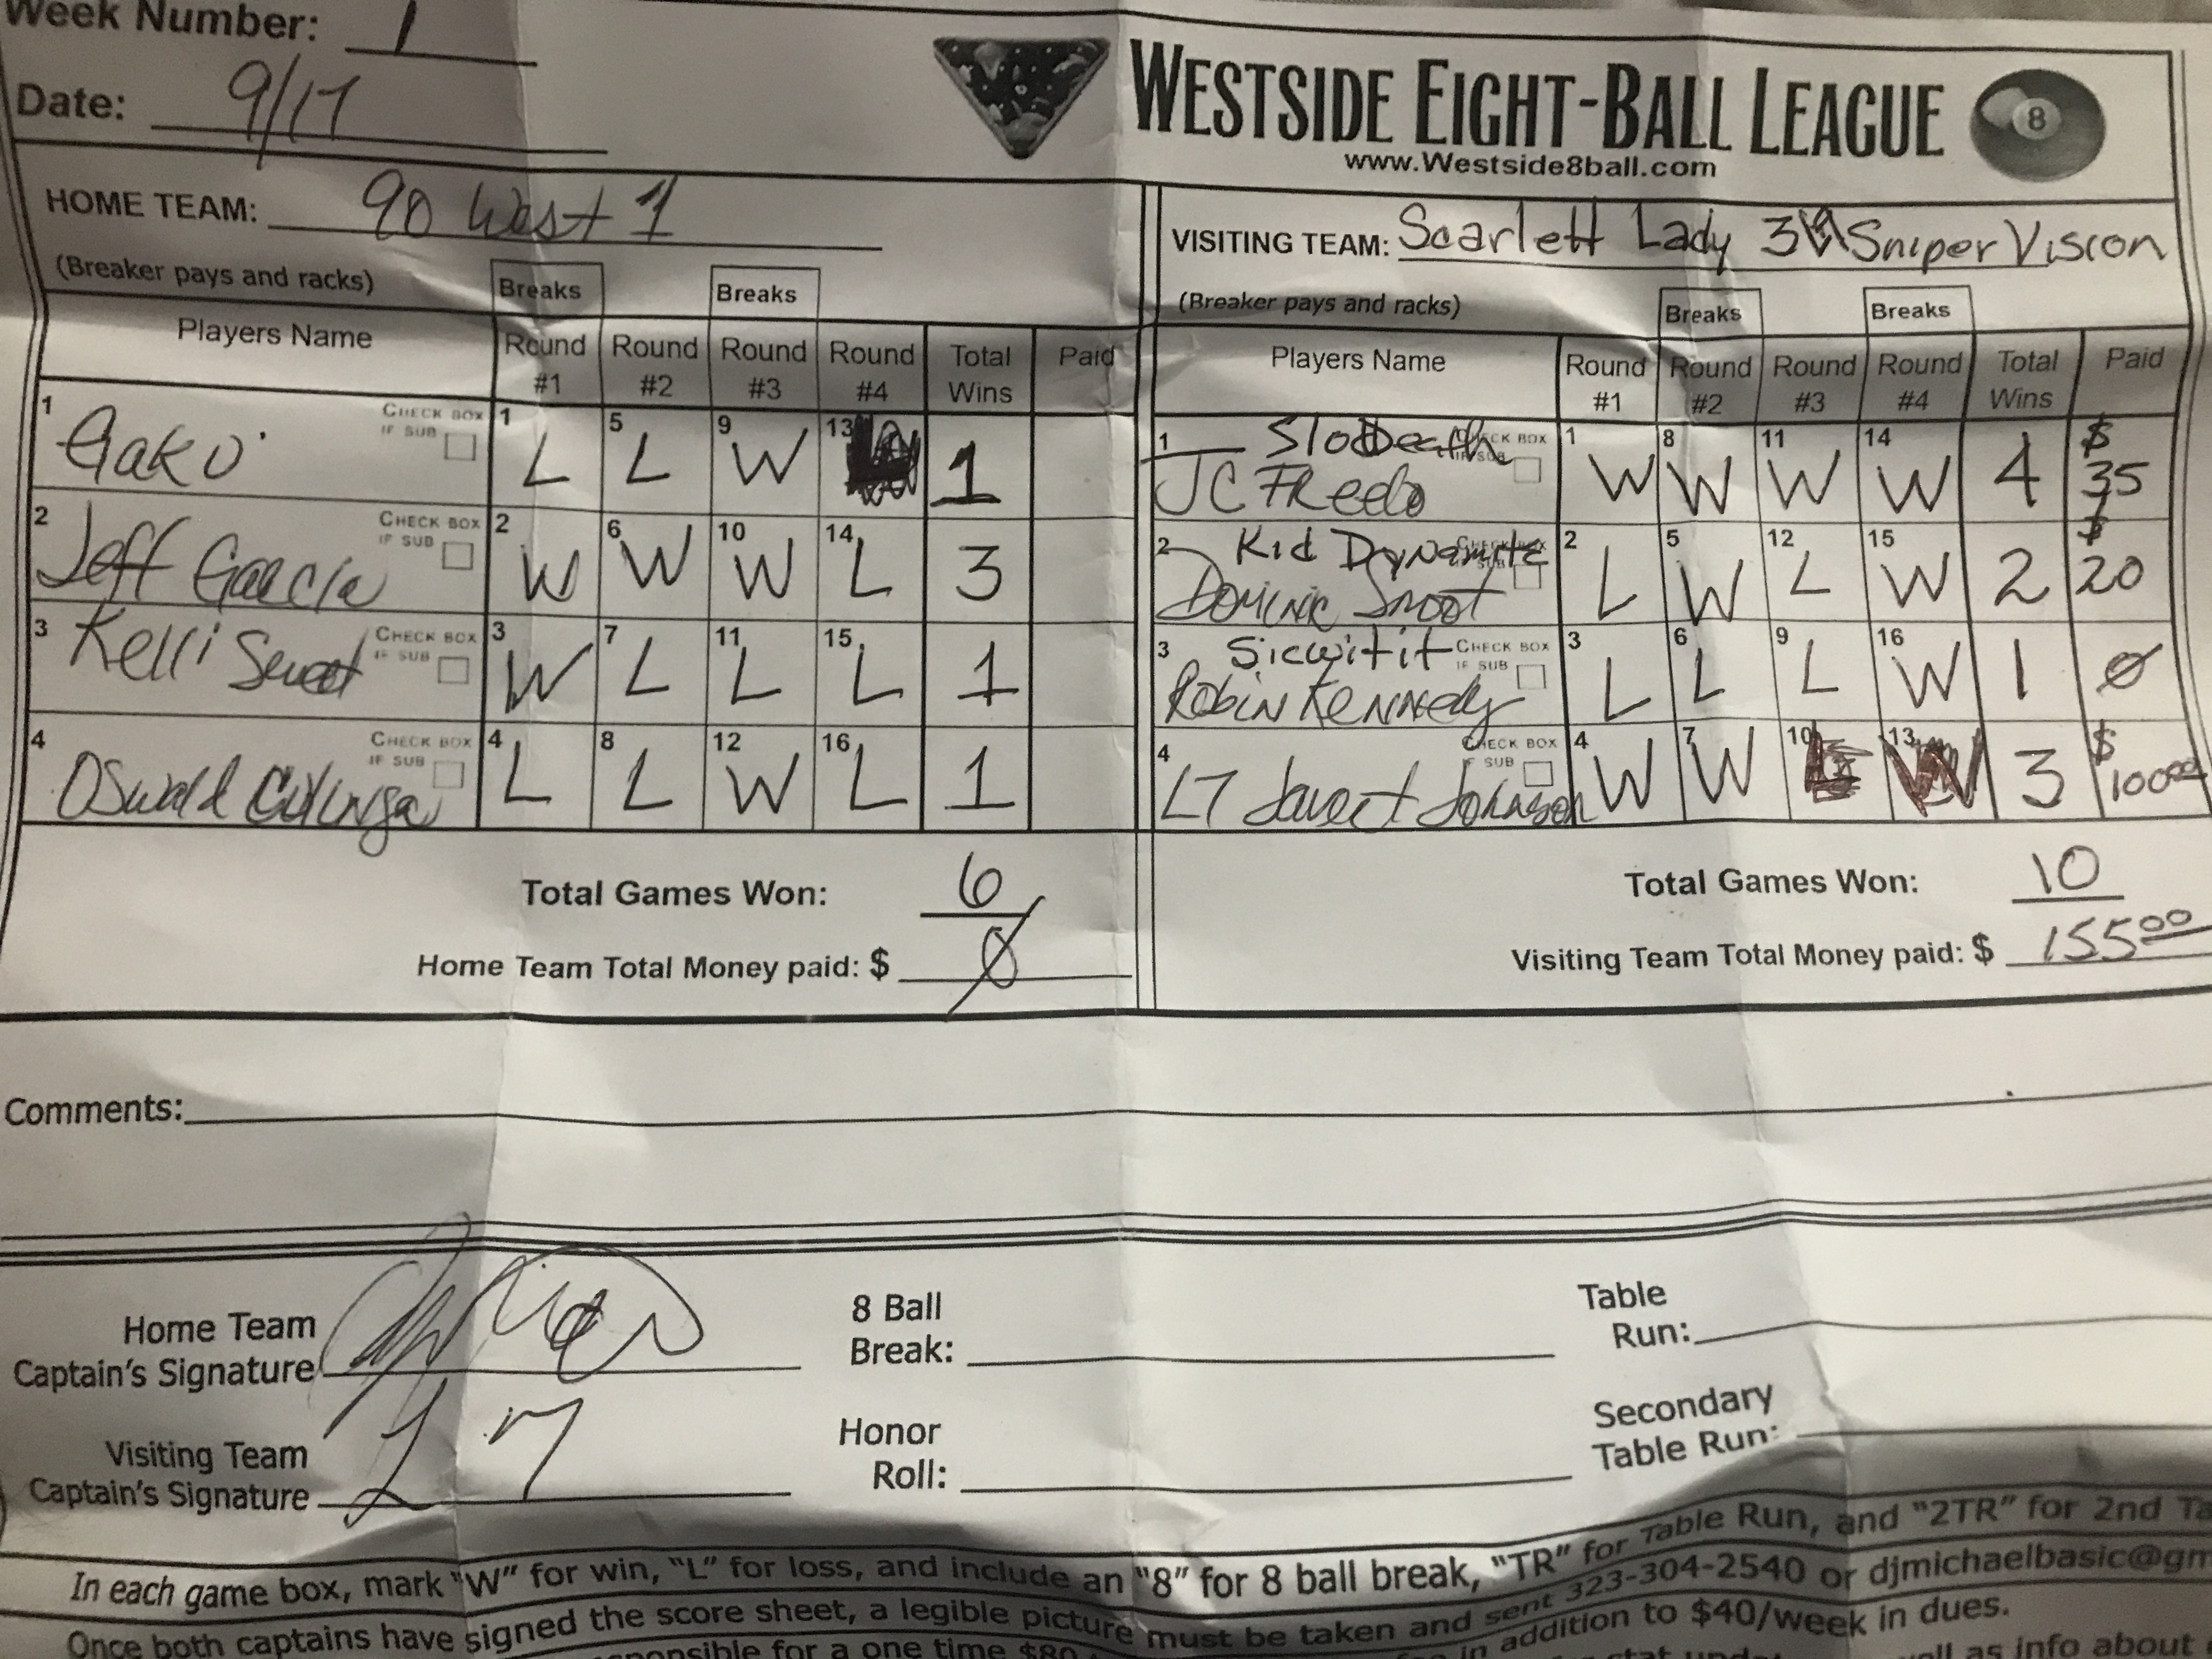 Week Number: 1
Date: 9/17
WESTSIDE EIGHT-BALL LEAGUE 8
www.Westside8ball.com
HOME TEAM: 90 West 1
VISITING TEAM: Scarlett Lady 3 Sniper Vision
(Breaker pays and racks) Breaks Breaks
(Breaker pays and racks) Breaks Breaks
Players Name Round #1 Round #2 Round #3 Round #4 Total Wins Paid
1 Gako CHECK BOX IF SUB 1 L 5 L 9 W 13 L 1
2 Jeff Garcia CHECK BOX IF SUB 2 W 6 W 10 W 14 L 3
3 Kelli Sweet CHECK BOX IF SUB 3 W 7 L 11 L 15 L 1
4 Oswald CHECK BOX IF SUB 4 L 8 L 12 W 16 L 1
Total Games Won: 6
Home Team Total Money paid: $ 0
Players Name Round #1 Round #2 Round #3 Round #4 Total Wins Paid
1 SloDeath JC FReedo CHECK BOX IF SUB 1 W 8 W 11 W 14 W 4 $35
2 Kid Dynamite Dominic Smoot CHECK BOX IF SUB 2 L 5 W 12 L 15 W 2 $20
3 Sicwitit Robin Kennedy CHECK BOX IF SUB 3 L 6 L 9 L 16 W 1 0
4 L7 Johnson CHECK BOX IF SUB 4 W 7 W 10 L 13 W 3 $100.00
Total Games Won: 10
Visiting Team Total Money paid: $ 155.00
Comments:
Home Team Captain's Signature
8 Ball Break:
Table Run:
Visiting Team Captain's Signature L7
Honor Roll:
Secondary Table Run:
In each game box, mark "W" for win, "L" for loss, and include an "8" for 8 ball break, "TR" for Table Run, and "2TR" for 2nd Ta
Once both captains have signed the score sheet, a legible picture must be taken and sent 323-304-2540 or djmichaelbasic@gm
for a one time $80 in addition to $40/week in dues.
as info about